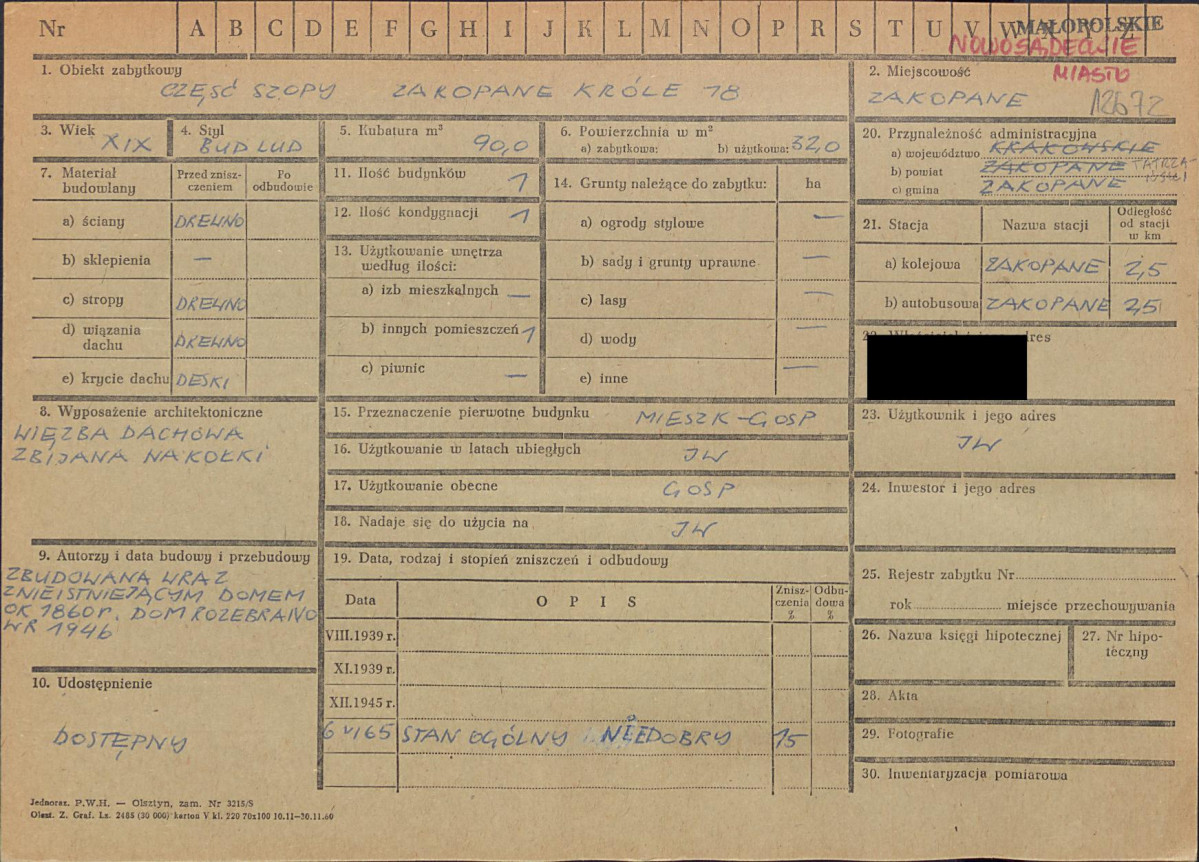 Nr A B C D E F G H I J K L M N O P R S T U V W X Y Z
MAŁOPOLSKIE
NOWOSĄDECKIE
MIASTO
1. Obiekt zabytkowy
CZĘŚĆ SZOPY ZAKOPANE KRÓLE 18
2. Miejscowość
ZAKOPANE 12672
3. Wiek
XIX
4. Styl
BUD LUD
5. Kubatura m³
90,0
6. Powierzchnia w m²
a) zabytkowa: b) użytkowa: 32,0
20. Przynależność administracyjna
a) województwo KRAKOWSKIE
b) powiat ZAKOPANE
c) gmina ZAKOPANE
7. Materiał budowlany
Przed zniszczeniem
Po odbudowie
a) ściany DREWNO
b) sklepienia —
c) stropy DREWNO
d) wiązania dachu DREWNO
e) krycie dachu DESKI
11. Ilość budynków 1
12. Ilość kondygnacji 1
13. Użytkowanie wnętrza
według ilości:
a) izb mieszkalnych —
b) innych pomieszczeń 1
c) piwnic —
14. Grunty należące do zabytku: ha
a) ogrody stylowe —
b) sady i grunty uprawne —
c) lasy —
d) wody —
e) inne —
21. Stacja Nazwa stacji Odległość od stacji w km
a) kolejowa ZAKOPANE 2,5
b) autobusowa ZAKOPANE 2,5
8. Wyposażenie architektoniczne
WIĘŹBA DACHOWA
ZBIJANA NA KOŁKI
15. Przeznaczenie pierwotne budynku MIESZK-GOSP
16. Użytkowanie w latach ubiegłych JW
17. Użytkowanie obecne GOSP
18. Nadaje się do użycia na JW
23. Użytkownik i jego adres
JW
24. Inwestor i jego adres
9. Autorzy i data budowy i przebudowy
ZBUDOWANA WRAZ
ZNIEISTNIEJĄCYM DOMEM
OK 1860 r. DOM ROZEBRANO
W R 1946
19. Data, rodzaj i stopień zniszczeń i odbudowy
Data OPIS Zniszczenia % Odbudowa %
VIII.1939 r.
XI.1939 r.
XII.1945 r.
6 VI 65 STAN OGÓLNY NIEDOBRY 15
10. Udostępnienie
DOSTĘPNY
25. Rejestr zabytku Nr
rok miejsce przechowywania
26. Nazwa księgi hipotecznej
27. Nr hipoteczny
28. Akta
29. Fotografie
30. Inwentaryzacja pomiarowa
Jednoraz. P.W.H. — Olsztyn, zam. Nr 3215/S
Olszt. Z. Graf. Lz. 2485 (30 000) karton V kl. 220 70x100 10.11—30.11.60